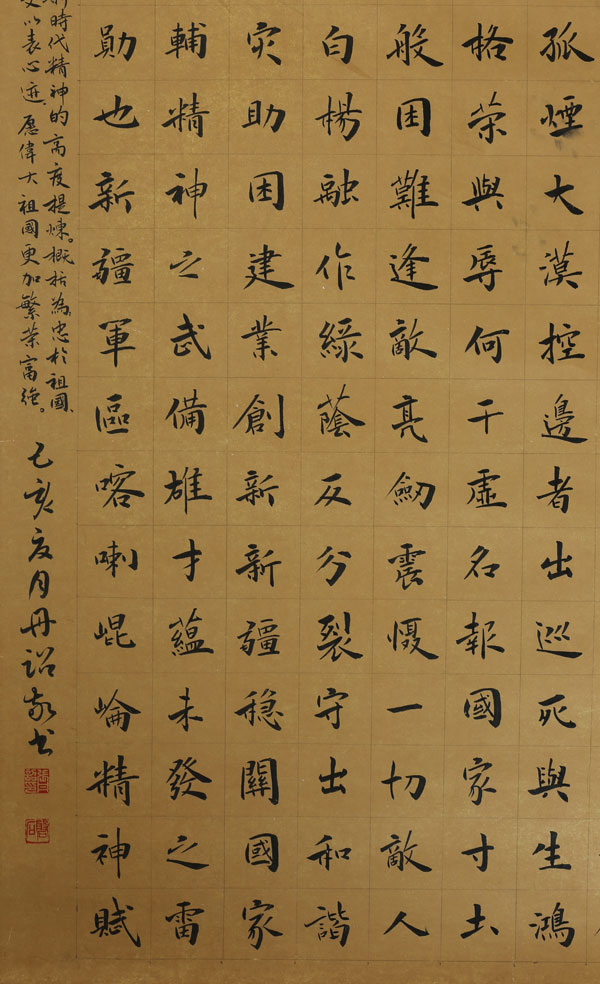 孤煙大漠控邊者出巡死與生鴻
格荣與辱何干虛名報國家寸土
般困難逢敵亮劍震慑一切敵人
白楊融作綠蔭反分裂守出和諧
灾助困建業創新新疆穩關國家
輔精神之武備雄才蘊未發之雷
勛也新疆軍區喀喇崐崘精神賦
時代精神的高度提煉。概括為忠於祖國、
以表心迹。愿偉大祖國更加繁荣富強。
己亥夏月丹韶敬书